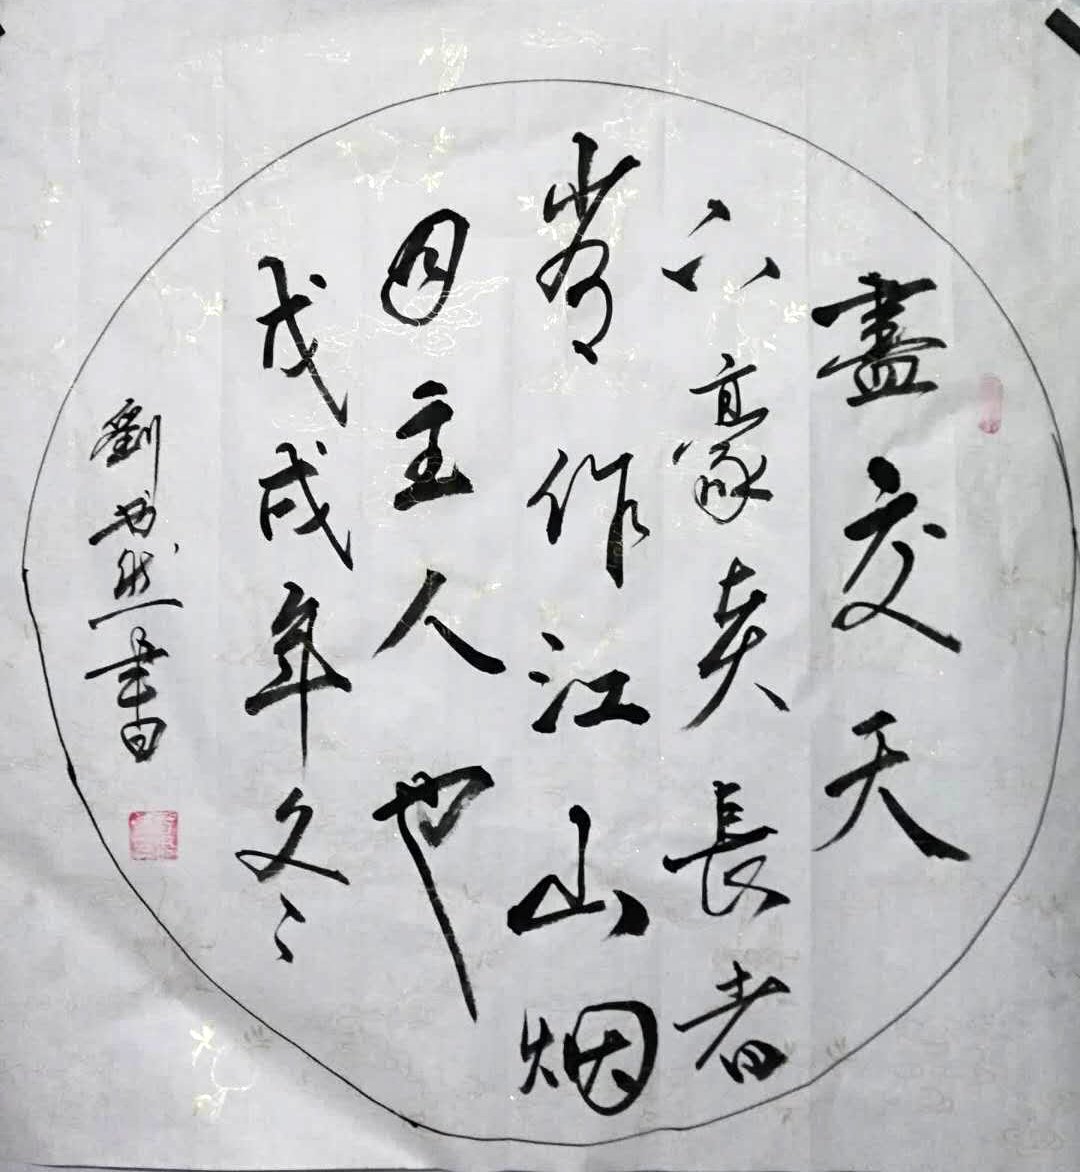 盡交天
下豪長者
常作江山烟
月主人也
戊戌年冬
劉書